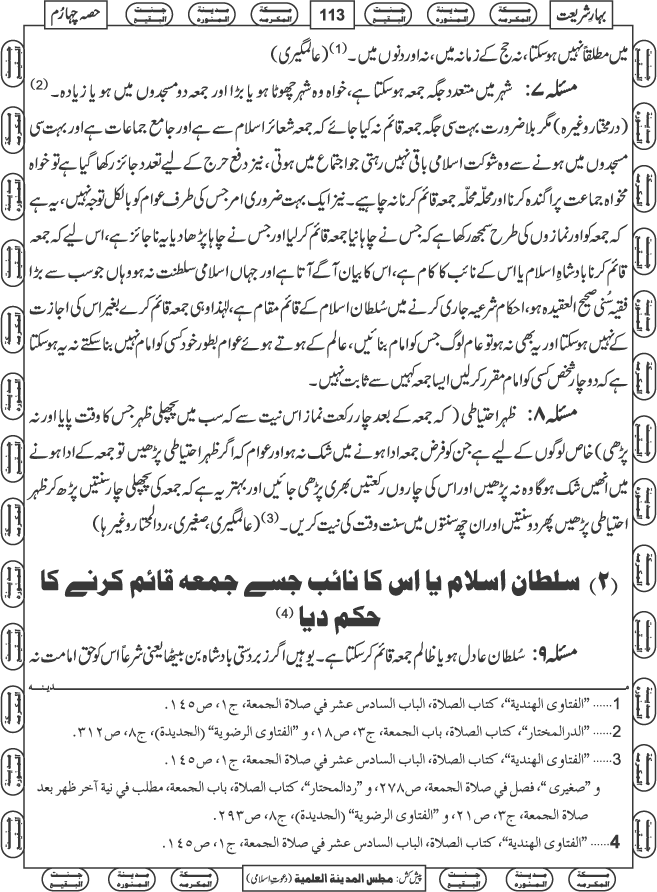 بہارِ شریعت
113
حصہ چہارم
میں مطلقاً نہیں ہو سکتا، نہ حج کے زمانہ میں، نہ اور دنوں میں۔ (1) (عالمگیری)
مسئلہ ۷: شہر میں متعدد جگہ جمعہ ہو سکتا ہے، خواہ وہ شہر چھوٹا ہو یا بڑا اور جمعہ دو مسجدوں میں ہو یا زیادہ۔ (2)
(درمختار وغیرہ) مگر بلا ضرورت بہت سی جگہ جمعہ قائم نہ کیا جائے کہ جمعہ شعائر اسلام سے ہے اور جامع جماعات ہے اور بہت سی
مسجدوں میں ہونے سے وہ شوکت اسلامی باقی نہیں رہتی جو اجتماع میں ہوتی، نیز دفع حرج کے لیے تعدد جائز رکھا گیا ہے تو خواہ
مخواہ جماعت پراگندہ کرنا اور محلّہ محلّہ جمعہ قائم کرنا نہ چاہیے۔ نیز ایک بہت ضروری امر جس کی طرف عوام کو بالکل توجہ نہیں، یہ ہے
کہ جمعہ کو اور نمازوں کی طرح سمجھ رکھا ہے کہ جس نے چاہا نیا جمعہ قائم کر لیا اور جس نے چاہا پڑھا دیا یہ ناجائز ہے، اس لیے کہ جمعہ
قائم کرنا بادشاہِ اسلام یا اس کے نائب کا کام ہے، اس کا بیان آگے آتا ہے اور جہاں اسلامی سلطنت نہ ہو وہاں جو سب سے بڑا
فقیہ سُنی صحیح العقیدہ ہو، احکام شرعیہ جاری کرنے میں سُلطان اسلام کے قائم مقام ہے، لہٰذا وہی جمعہ قائم کرے بغیر اس کی اجازت
کے نہیں ہو سکتا اور یہ بھی نہ ہو تو عام لوگ جس کو امام بنائیں، عالم کے ہوتے ہوئے عوام بطور خود کسی کو امام نہیں بنا سکتے نہ یہ ہو سکتا
ہے کہ دو چار شخص کسی کو امام مقرر کر لیں ایسا جمعہ کہیں سے ثابت نہیں۔
مسئلہ ۸: ظہر احتیاطی (کہ جمعہ کے بعد چار رکعت نماز اس نیت سے کہ سب میں پچھلی ظہر جس کا وقت پایا اور نہ
پڑھی) خاص لوگوں کے لیے ہے جن کو فرض جمعہ ادا ہونے میں شک نہ ہو اور عوام کہ اگر ظہر احتیاطی پڑھیں تو جمعہ کے ادا ہونے
میں انھیں شک ہوگا وہ نہ پڑھیں اور اس کی چاروں رکعتیں بھری پڑھی جائیں اور بہتر یہ ہے کہ جمعہ کی پچھلی چار سنتیں پڑھ کر ظہر
احتیاطی پڑھیں پھر دو سنتیں اور ان چھ سنتوں میں سنت وقت کی نیت کریں۔ (3) (عالمگیری، صغیری، ردالمحتار وغیرہا)
(۲) سلطان اسلام یا اس کا نائب جسے جمعہ قائم کرنے کا
حکم دیا (4)
مسئلہ ۹: سُلطان عادل ہو یا ظالم جمعہ قائم کر سکتا ہے۔ یوہیں اگر زبردستی بادشاہ بن بیٹھا یعنی شرعاً اس کو حق امامت نہ
مدینہ
1...... "الفتاوى الهندية"، كتاب الصلاة، الباب السادس عشر في صلاة الجمعة، ج١، ص١٤٥.
2...... "الدرالمختار"، كتاب الصلاة، باب الجمعة، ج٣، ص١٨، و "الفتاوى الرضوية" (الجديدة)، ج٨، ص٣١٢.
3...... "الفتاوى الهندية"، كتاب الصلاة، الباب السادس عشر في صلاة الجمعة، ج١، ص١٤٥.
و "صغيرى"، فصل في صلاة الجمعة، ص٢٧٨، و "ردالمحتار"، كتاب الصلاة، باب الجمعة، مطلب في نية آخر ظهر بعد
صلاة الجمعة، ج٣، ص٢١، و "الفتاوى الرضوية" (الجديدة)، ج٨، ص٢٩٣.
4...... "الفتاوى الهندية"، كتاب الصلاة، الباب السادس عشر في صلاة الجمعة، ج١، ص١٤٥.
پیش کش: مجلس المدينة العلمية (دعوتِ اسلامی)